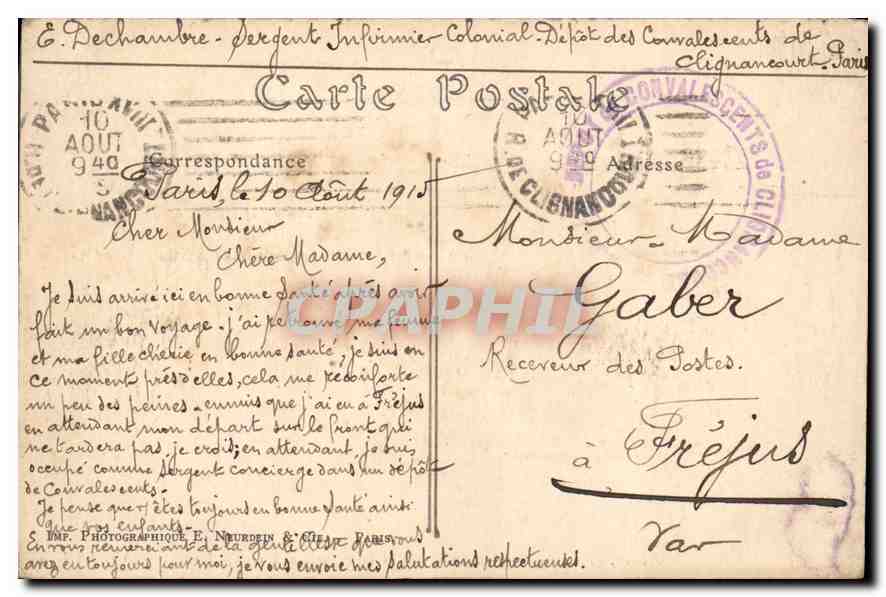 E. Dechambre - Sergent Infirmier Colonial - Dépôt des Convalescents de
Clignancourt - Paris
Carte Postale
10
AOUT
9 40
R. DE CLIGNANCOURT
CONVALESCENTS de CLIGNANCOURT
Correspondance
Adresse
Paris, le 10 Août 1915
Cher Monsieur
Chère Madame,
Je suis arrivé ici en bonne santé après avoir
fait un bon voyage - j'ai retrouvé ma femme
et ma fille chérie en bonne santé, je suis en
ce moment près d'elles, cela me reconforte
un peu des peines - ennuis que j'ai eu à Fréjus
en attendant mon départ sur le front qui
ne tardera pas, je crois; en attendant, je suis
occupé comme sergent concierge dans un dépôt
de Convalescents -
Je pense que v/ êtes toujours en bonne santé ainsi
que vos enfants -
IMP. PHOTOGRAPHIQUE E. NEURDEIN & CIE - PARIS
En vous remerciant de la gentillesse que vous
avez eu toujours pour moi, je vous envoie mes salutations respectueuses.
Monsieur - Madame
Gaber
Receveur des Postes.
à Fréjus
Var
CPAPHIL